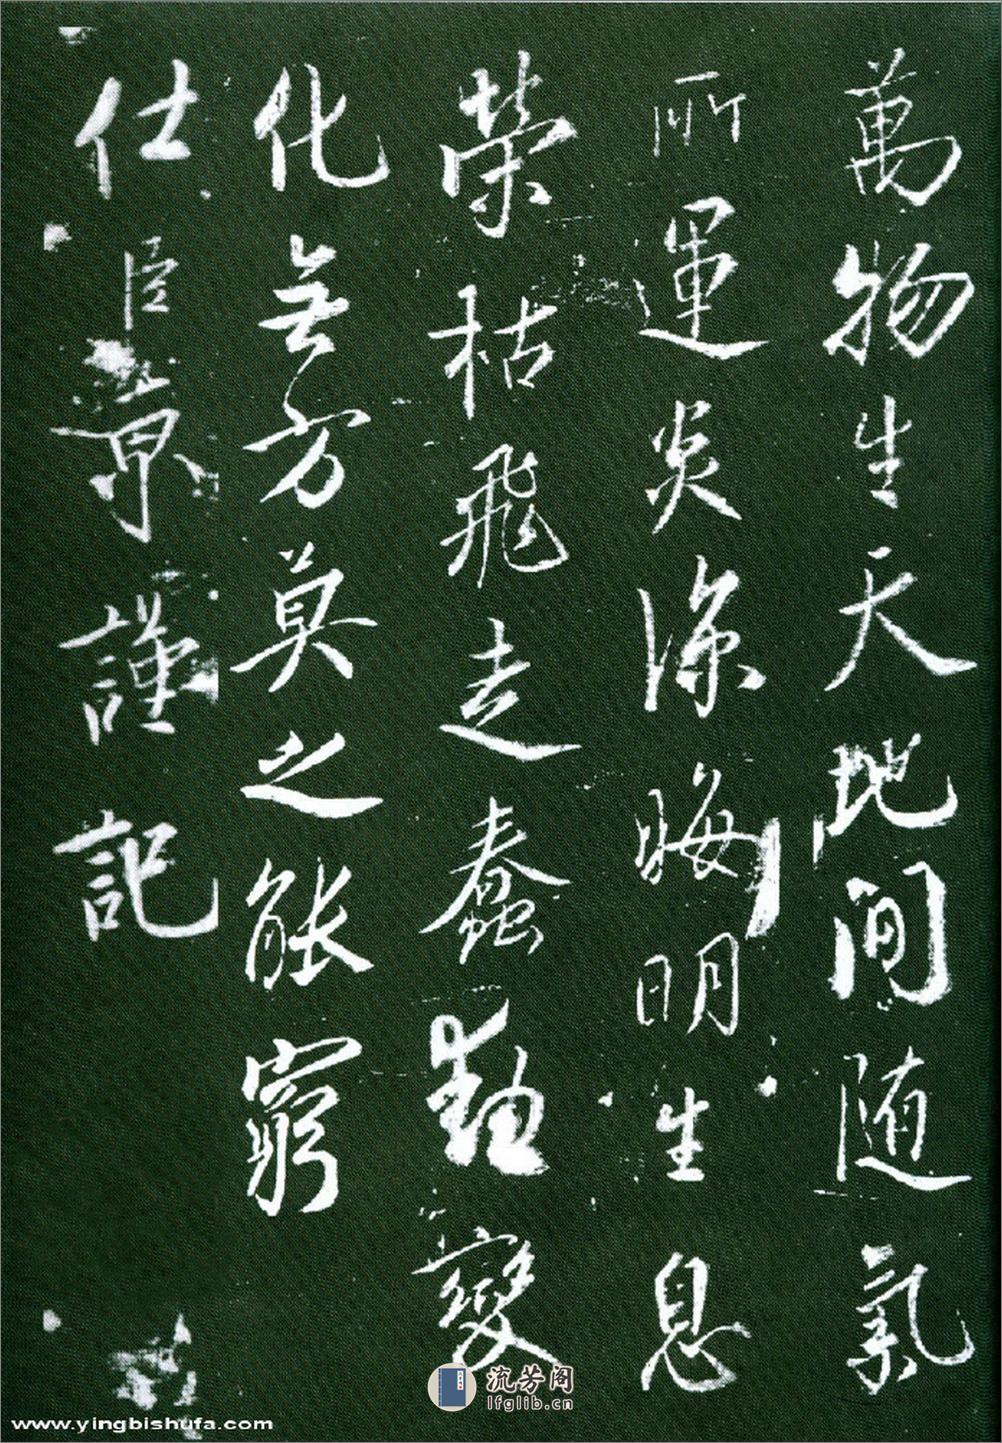 萬物生天地间随氣
所運炎涼晦明生息
荣枯飛走蠢動變
化㐬方莫之能窮
仕臣京謹記
流芳阁
lfglib.cn
www.yingbishufa.com